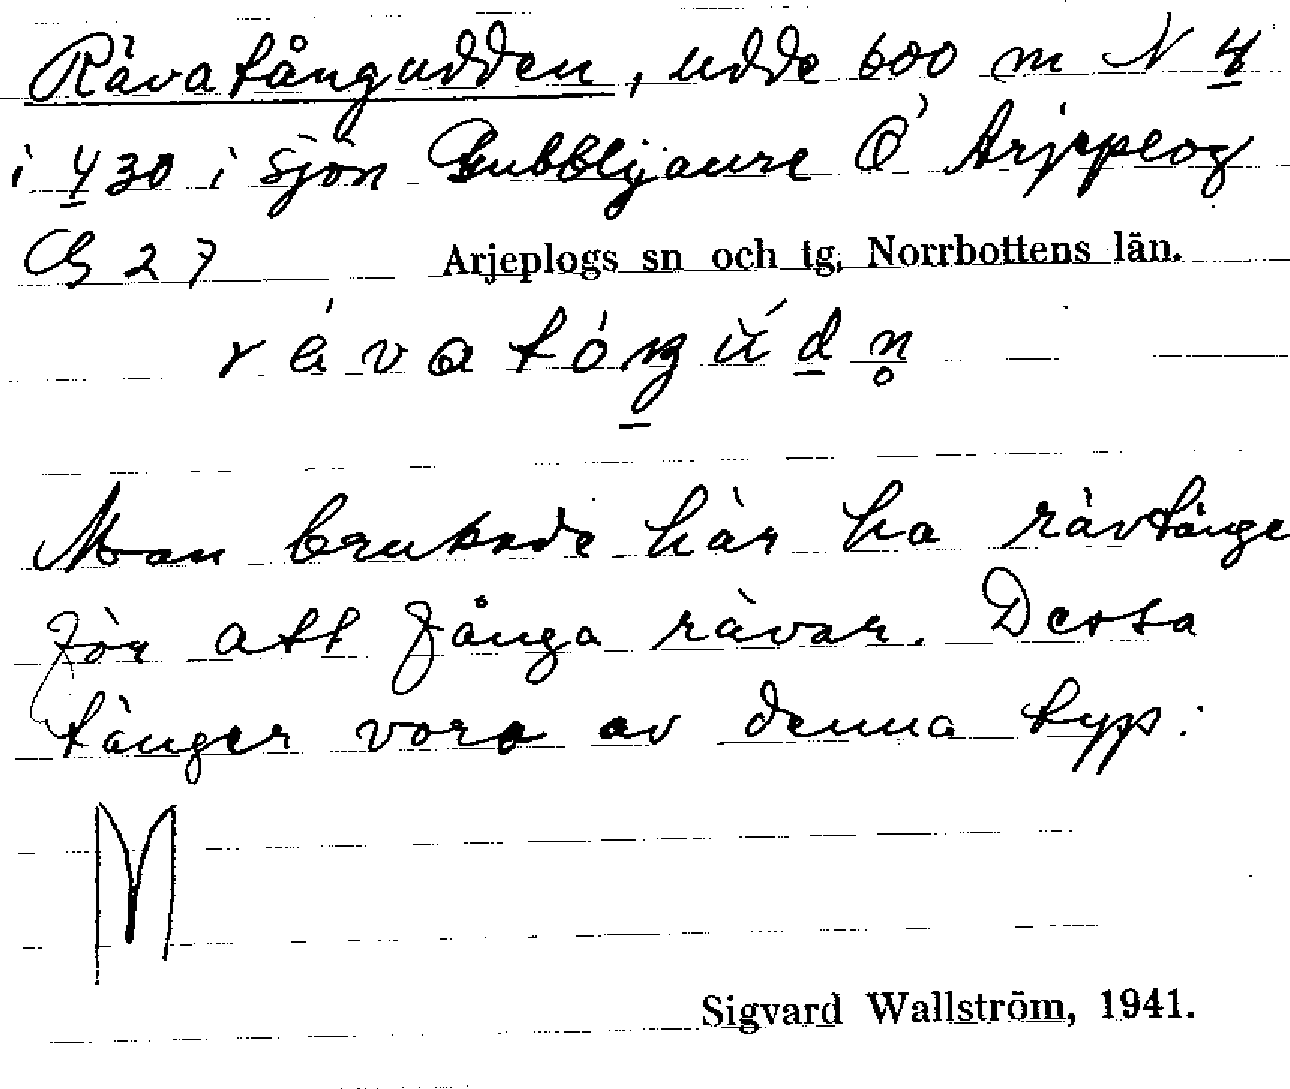 Rävatångudden, udde 600 m N 4
i 430 i sjön Gubblijaure Ö Arjeplog
G 27 Arjeplogs sn och tg, Norrbottens län.
Man brukade här ha rävtånge
för att fånga rävar. Dessa
tånger voro av denna typ:
Sigvard Wallström, 1941.